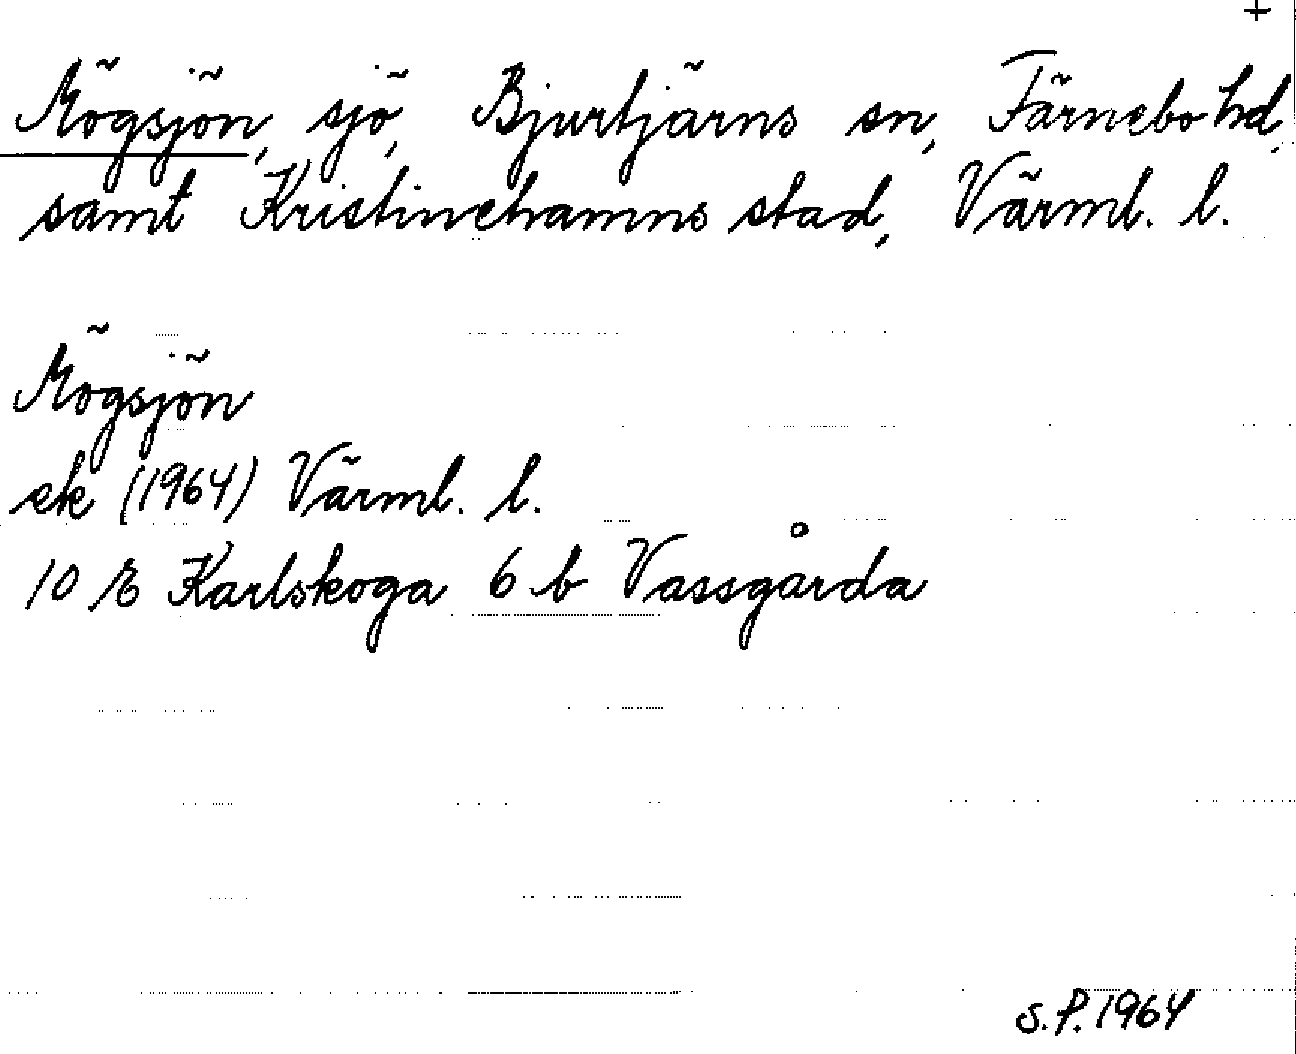 +
Mögsjön, sjö, Bjurtjärns sn, Färnebo hd,
samt Kristinehamns stad, Värml. l.
Mögsjön
ek (1964) Värml. l.
10 E Karlskoga 6 b Vassgårda
S.P. 1964